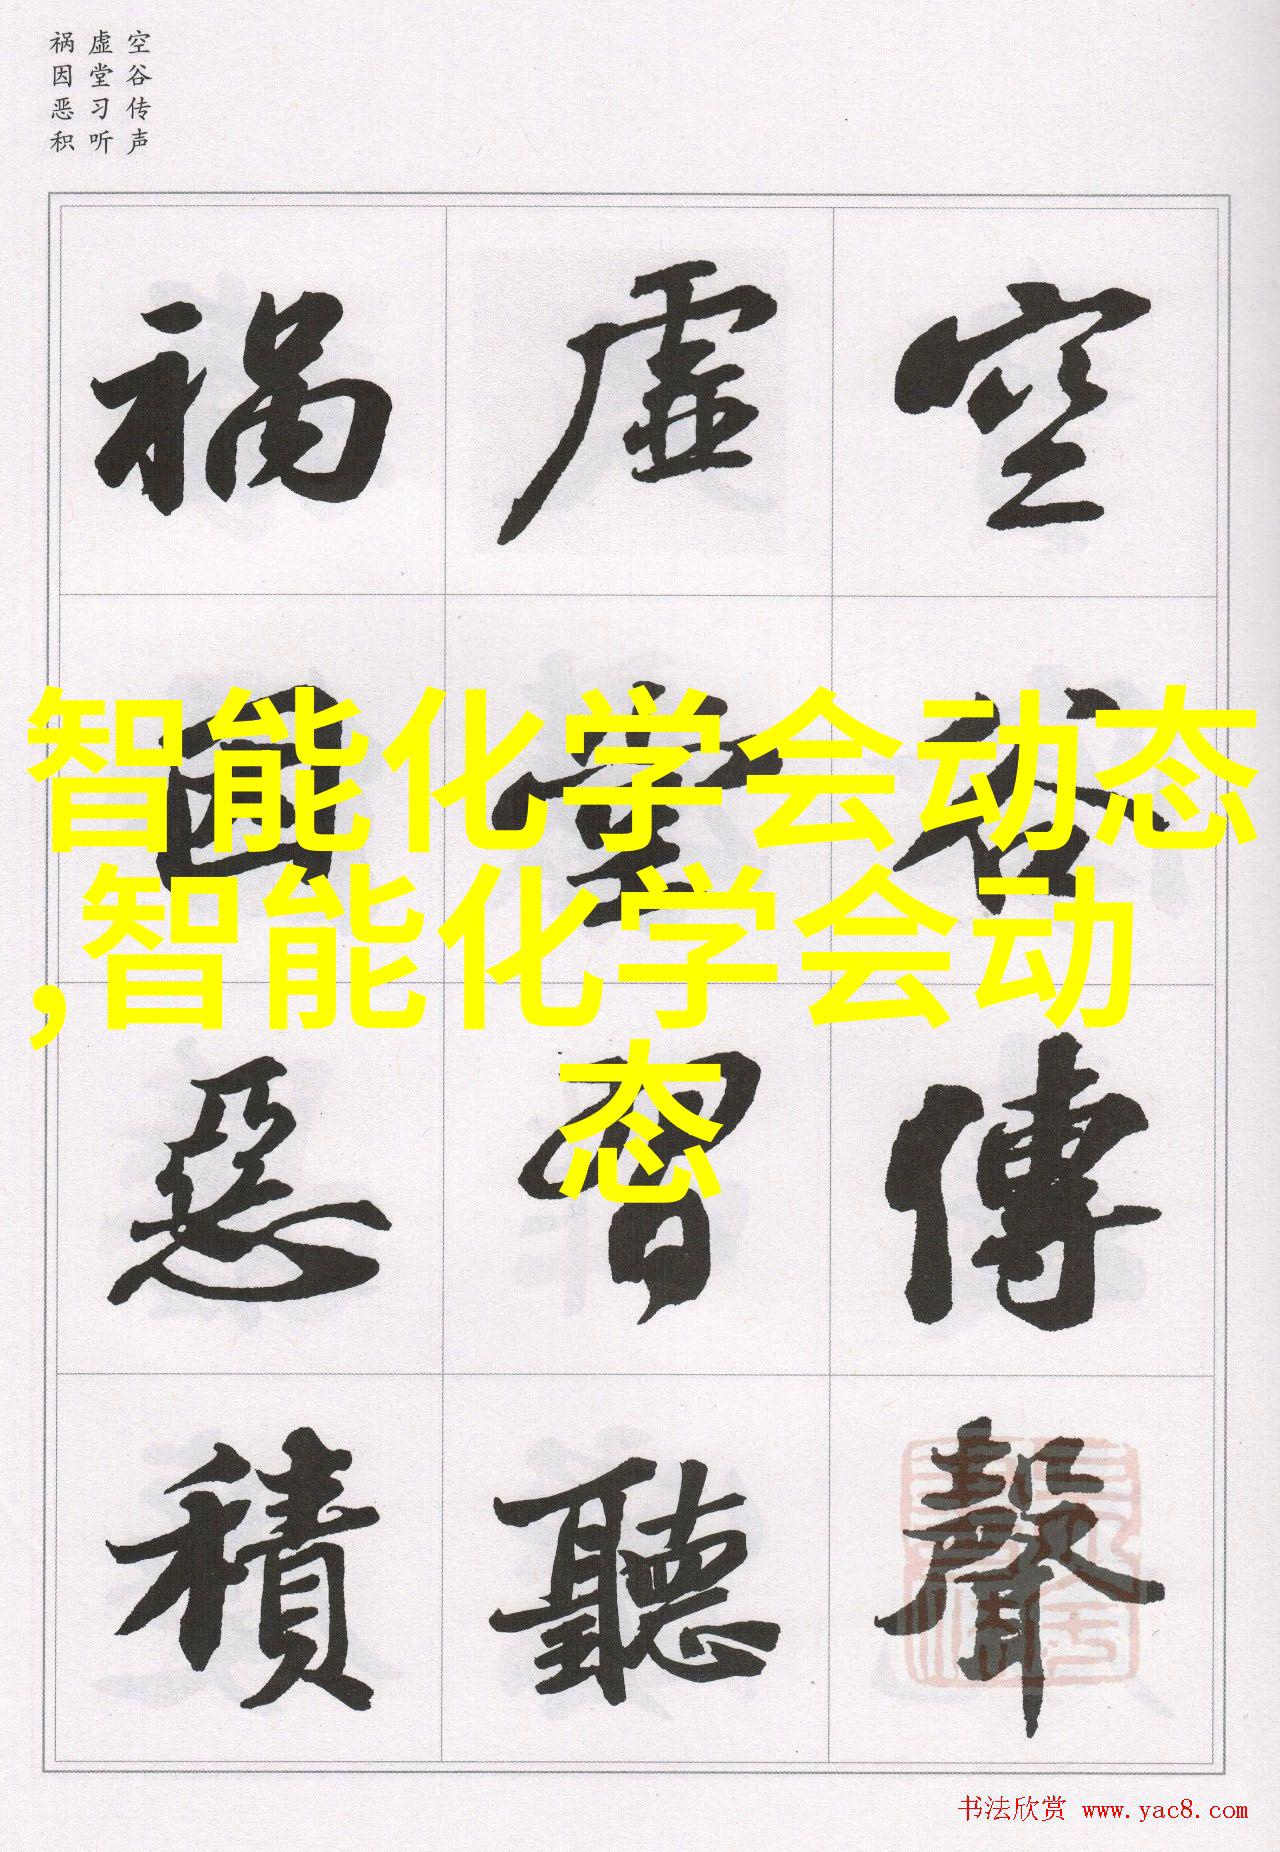 空谷传声
虚堂习听
祸因恶积
空谷傳聲
虛堂習聽
禍因惡積
智能化学会动态
,智能化学会动
态
书法欣赏 www.yac8.com